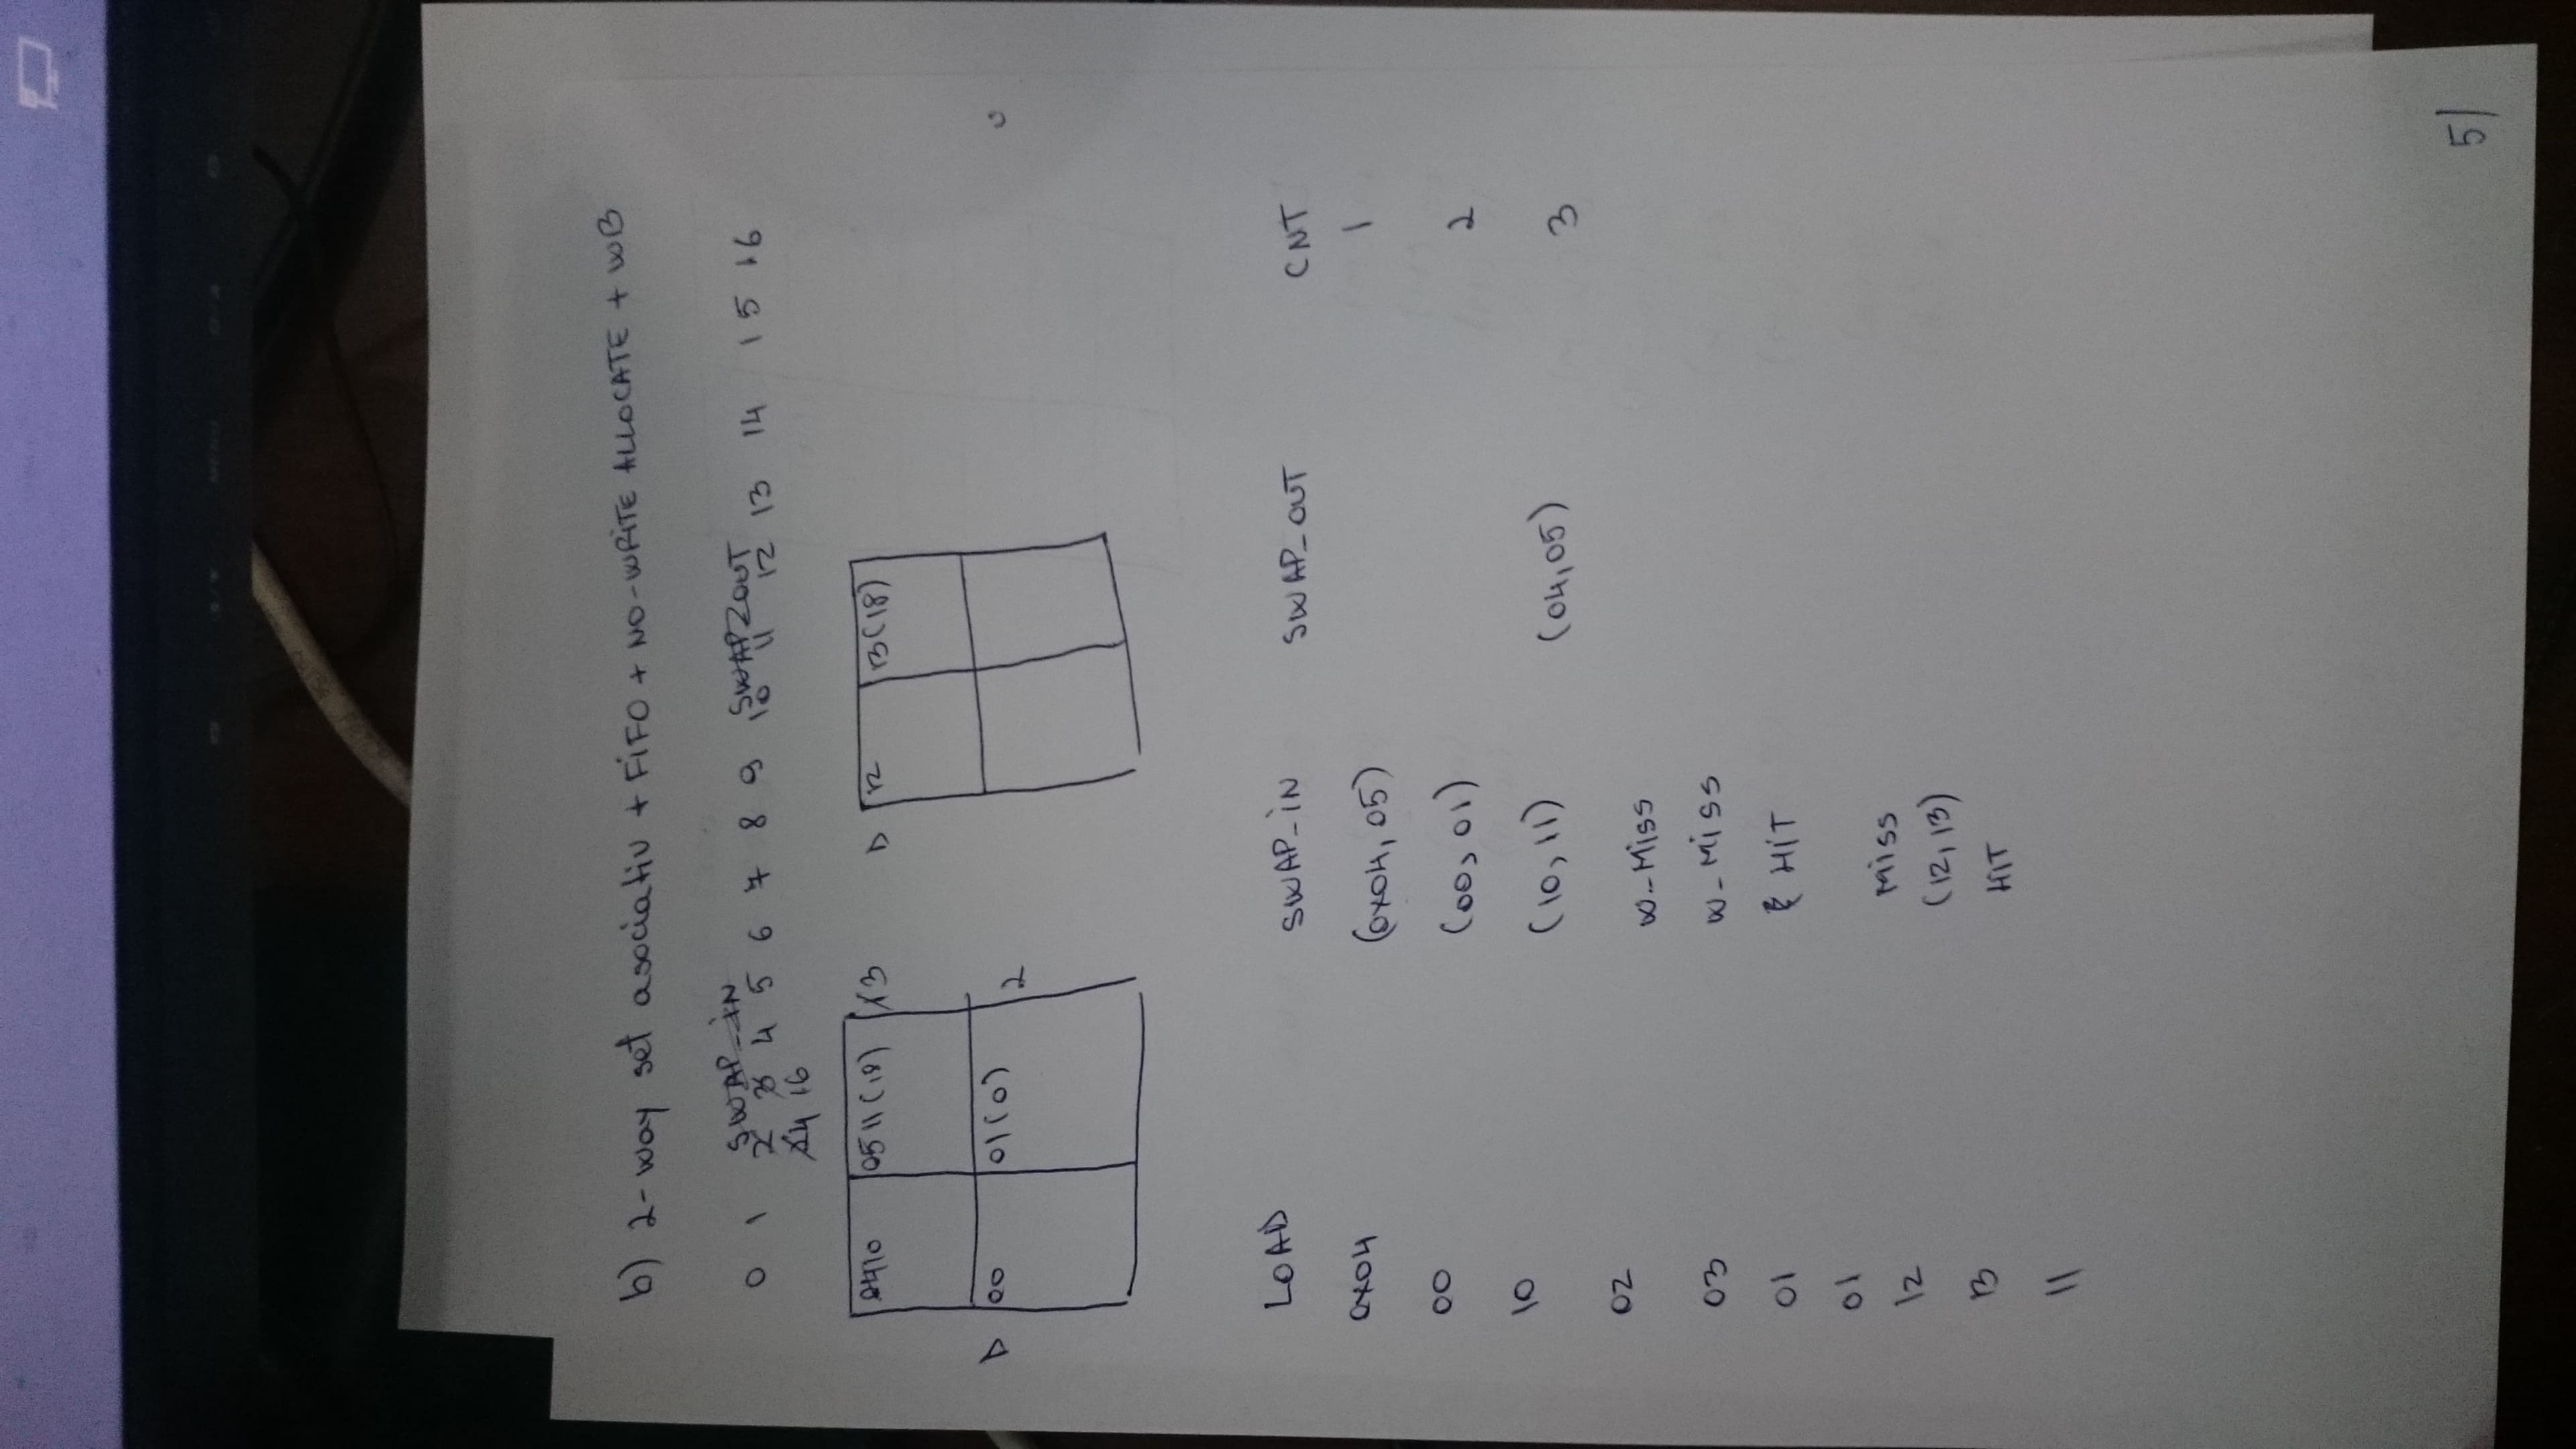 b) 2-way set asociativ + FiFO + NO-WRiTE ALLOCATE + WB
SWAP-iN SWAP OUT
0 1 2 3 4 5 6 7 8 9 10 11 12 13 14 15 16
4 16
10 05 11 (18) 3
D 12 13(18)
D 00 01(0) 2
LOAD SWAP-iN SWAP-OUT CNT
0x04 (0x04, 05) 1
00 (00, 01) 2
10 (10, 11) (04,05) 3
02 W-Miss
03 W-Miss
01 HiT
01
Miss
12 (12, 13)
13 HiT
11
5|